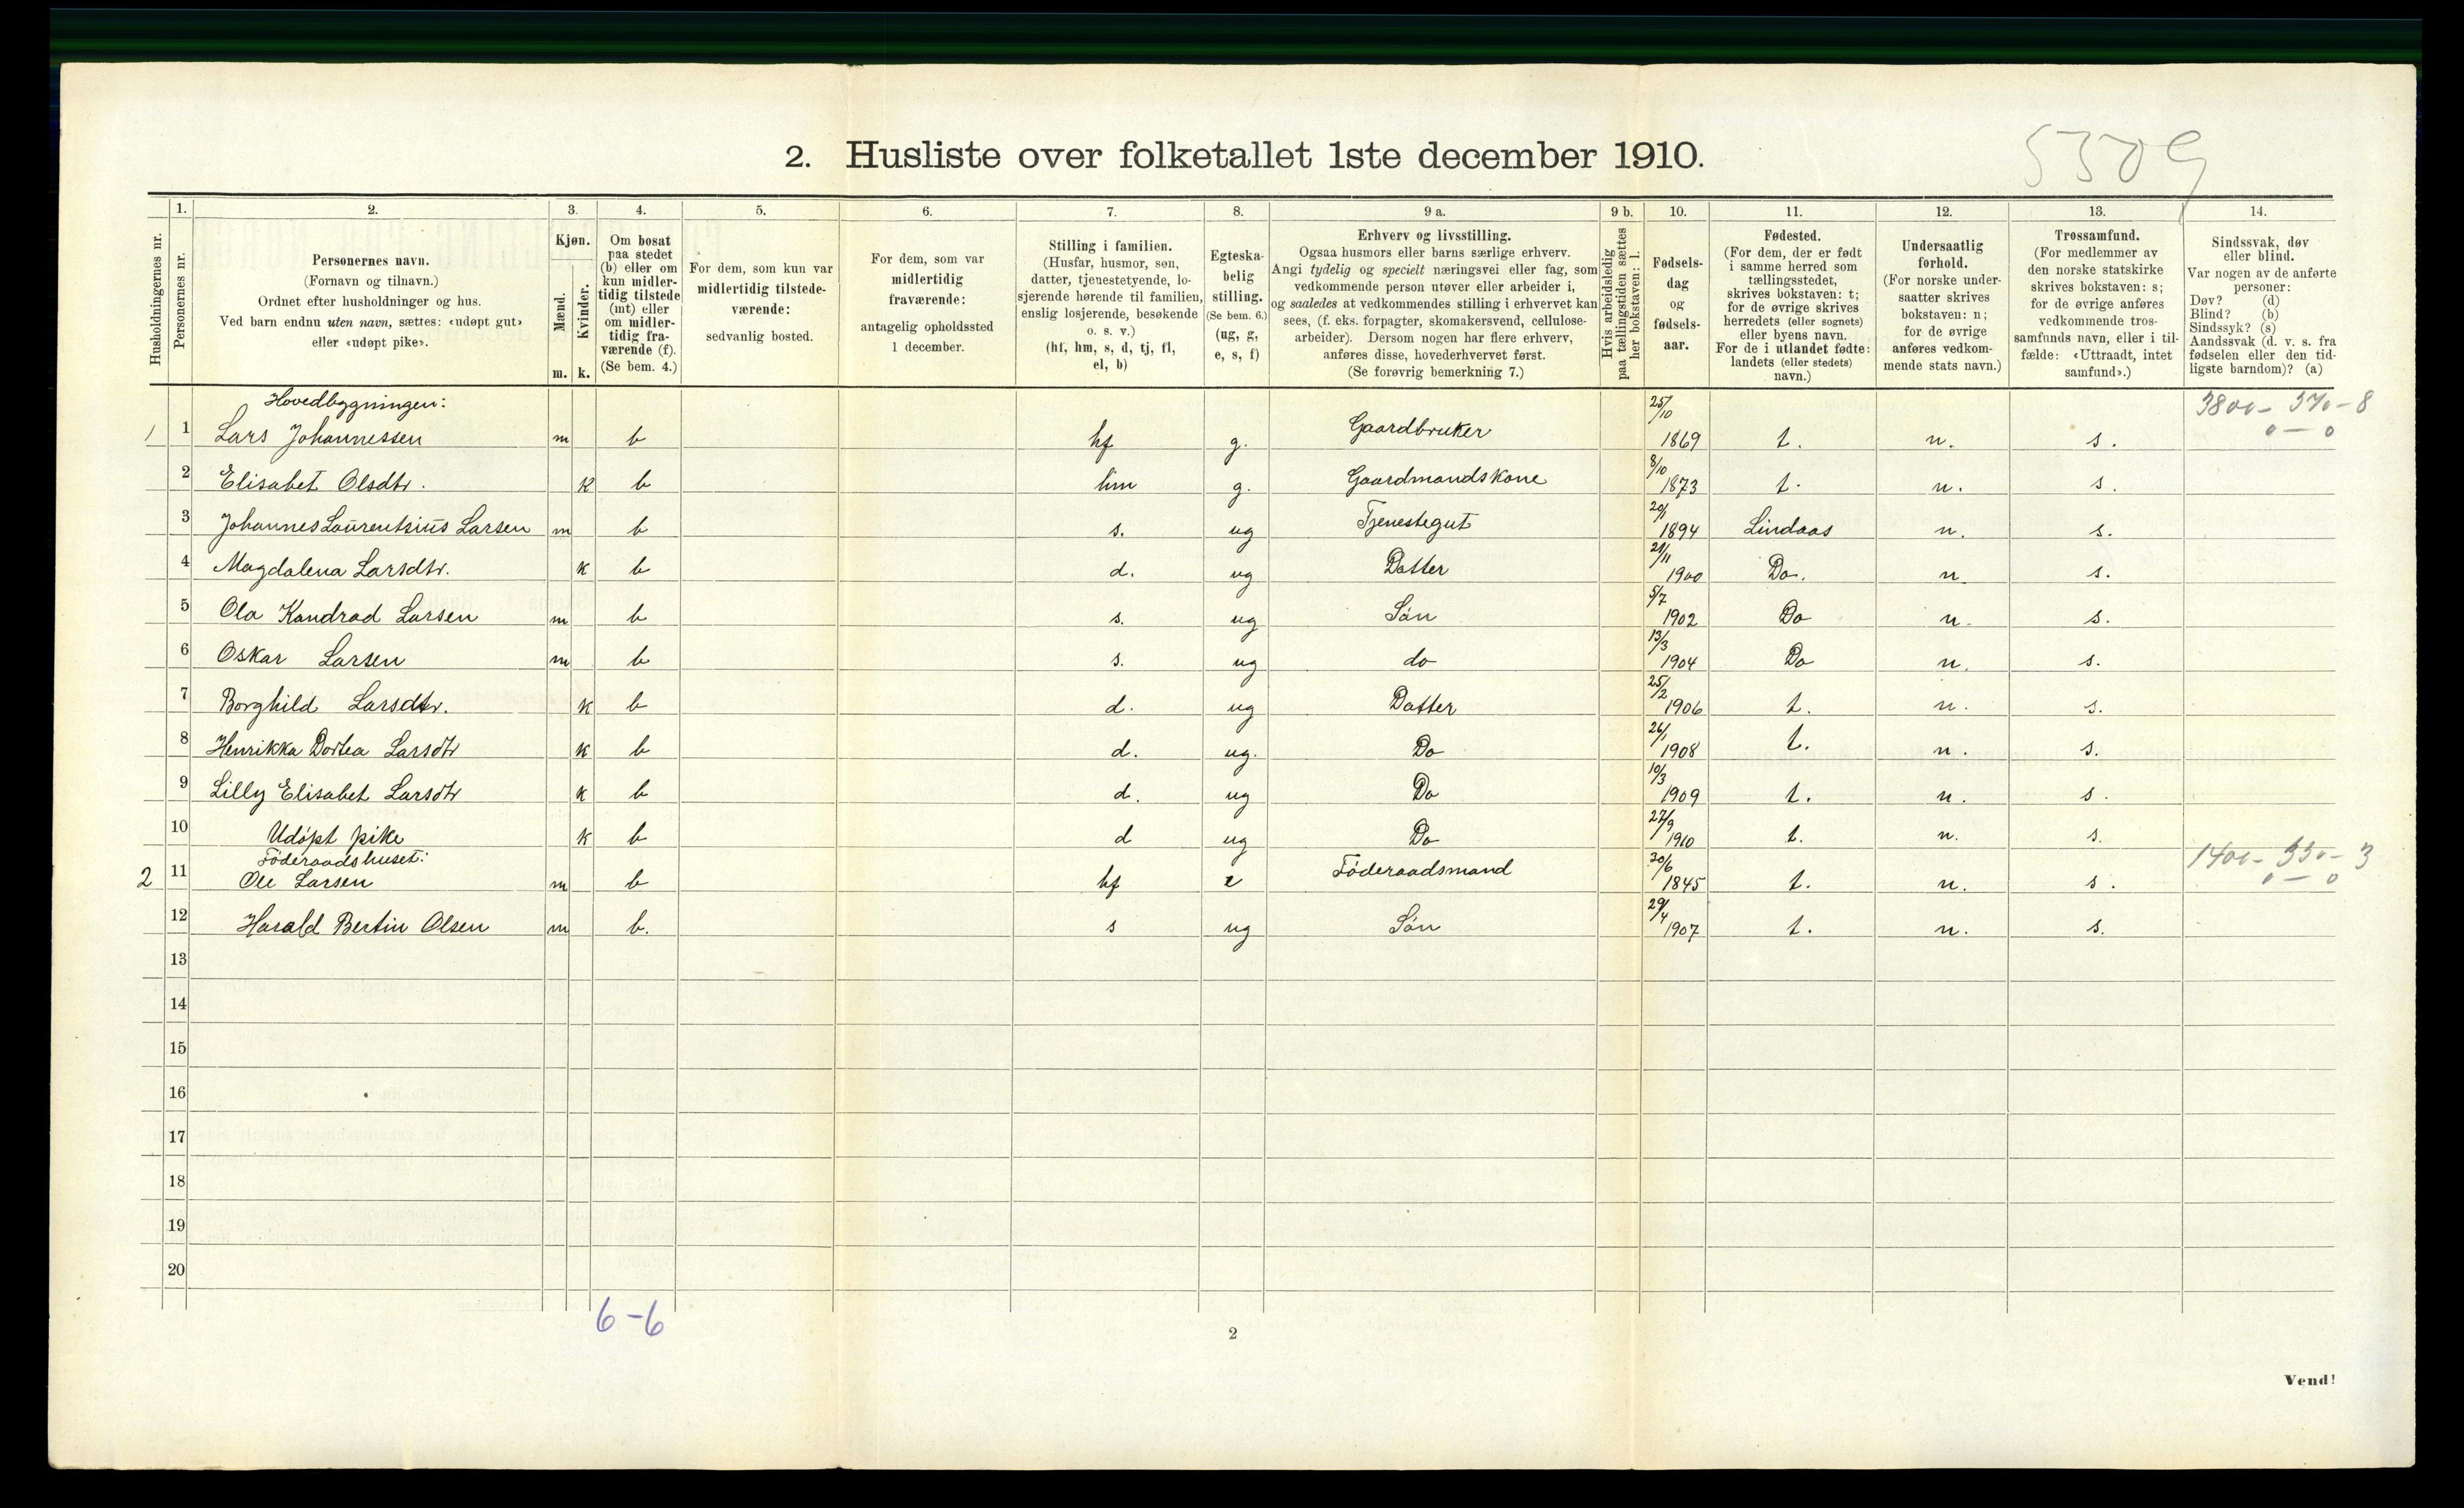 5509
2. Husliste over folketallet 1ste december 1910.
1. 2. 3. 4. 5. 6. 7. 8. 9 a. 9 b. 10. 11. 12. 13. 14.
Husholdningernes nr.
Personernes nr.
Personernes navn.
(Fornavn og tilnavn.)
Ordnet efter husholdninger og hus.
Ved barn endnu uten navn, sættes: «udøpt gut»
eller «udøpt pike».
Kjøn.
Mænd.
Kvinder.
m. k.
Om bosat
paa stedet
(b) eller om
kun midler-
tidig tilstede
(mt) eller
om midler-
tidig fra-
værende (f).
(Se bem. 4.)
For dem, som kun var
midlertidig tilstede-
værende:
sedvanlig bosted.
For dem, som var
midlertidig
fraværende:
antagelig opholdssted
1 december.
Stilling i familien.
(Husfar, husmor, søn,
datter, tjenestetyende, lo-
sjerende hørende til familien,
enslig losjerende, besøkende
o. s. v.)
(hf, hm, s, d, tj, fl,
el, b)
Egteska-
belig
stilling.
(Se bem. 6.)
(ug, g,
e, s, f)
Erhverv og livsstilling.
Ogsaa husmors eller barns særlige erhverv.
Angi tydelig og specielt næringsvei eller fag, som
vedkommende person utøver eller arbeider i,
og saaledes at vedkommendes stilling i erhvervet kan
sees, (f. eks. forpagter, skomakersvend, cellulose-
arbeider). Dersom nogen har flere erhverv,
anføres disse, hovederhvervet først.
(Se forøvrig bemerkning 7.)
Hvis arbeidsledig
paa tællingstiden sættes
her bokstaven: l.
Fødsels-
dag
og
fødsels-
aar.
Fødested.
(For dem, der er født
i samme herred som
tællingsstedet,
skrives bokstaven: t;
for de øvrige skrives
herredets (eller sognets)
eller byens navn.
For de i utlandet fødte:
landets (eller stedets)
navn.)
Undersaatlig
forhold.
(For norske under-
saatter skrives
bokstaven: n;
for de øvrige
anføres vedkom-
mende stats navn.)
Trossamfund.
(For medlemmer av
den norske statskirke
skrives bokstaven: s;
for de øvrige anføres
vedkommende tros-
samfunds navn, eller i til-
fælde: «Uttraadt, intet
samfund».)
Sindssvak, døv
eller blind.
Var nogen av de anførte
personer:
Døv? (d)
Blind? (b)
Sindssyk? (s)
Aandssvak (d. v. s. fra
fødselen eller den tid-
ligste barndom)? (a)
Hovedbygningen:
1 1 Lars Johannessen m b hf g. Gaardbruker 25/10 1869 t. n. s. 3800 - 370 - 8
0 — 0
2 Elisabet Olsdtr. K b hm g. Gaardmandskone 8/10 1873 t. n. s.
3 Johannes Laurentsius Larsen m b s. ug Tjenestegut 20/1 1894 Lindaas n. s.
4 Magdalena Larsdtr. k b d. ug Datter 21/11 1900 Do. n. s.
5 Ola Kondrad Larsen m b s. ug Søn 5/7 1902 Do n. s.
6 Oskar Larsen m b s. ug do 13/3 1904 Do n. s.
7 Borghild Larsdtr. k b d. ug Datter 25/2 1906 t. n. s.
8 Henrikka Dortea Larsdtr k b d. ug. Do 26/1 1908 t. n. s.
9 Lilly Elisabet Larsdtr k b d. ug Do 10/3 1909 t. n. s.
10 Udøpt pike k b d ug Do 27/9 1910 t. n. s.
Föderaadshuset:
2 11 Ole Larsen m b hf e Föderaadsmand 30/6 1845 t. n. s. 1400 - 330 - 3
0 — 0
12 Harald Bertin Olsen m b. s ug Søn 29/4 1907 t. n. s.
13
14
15
16
17
18
19
20
6 - 6
2
Vend!